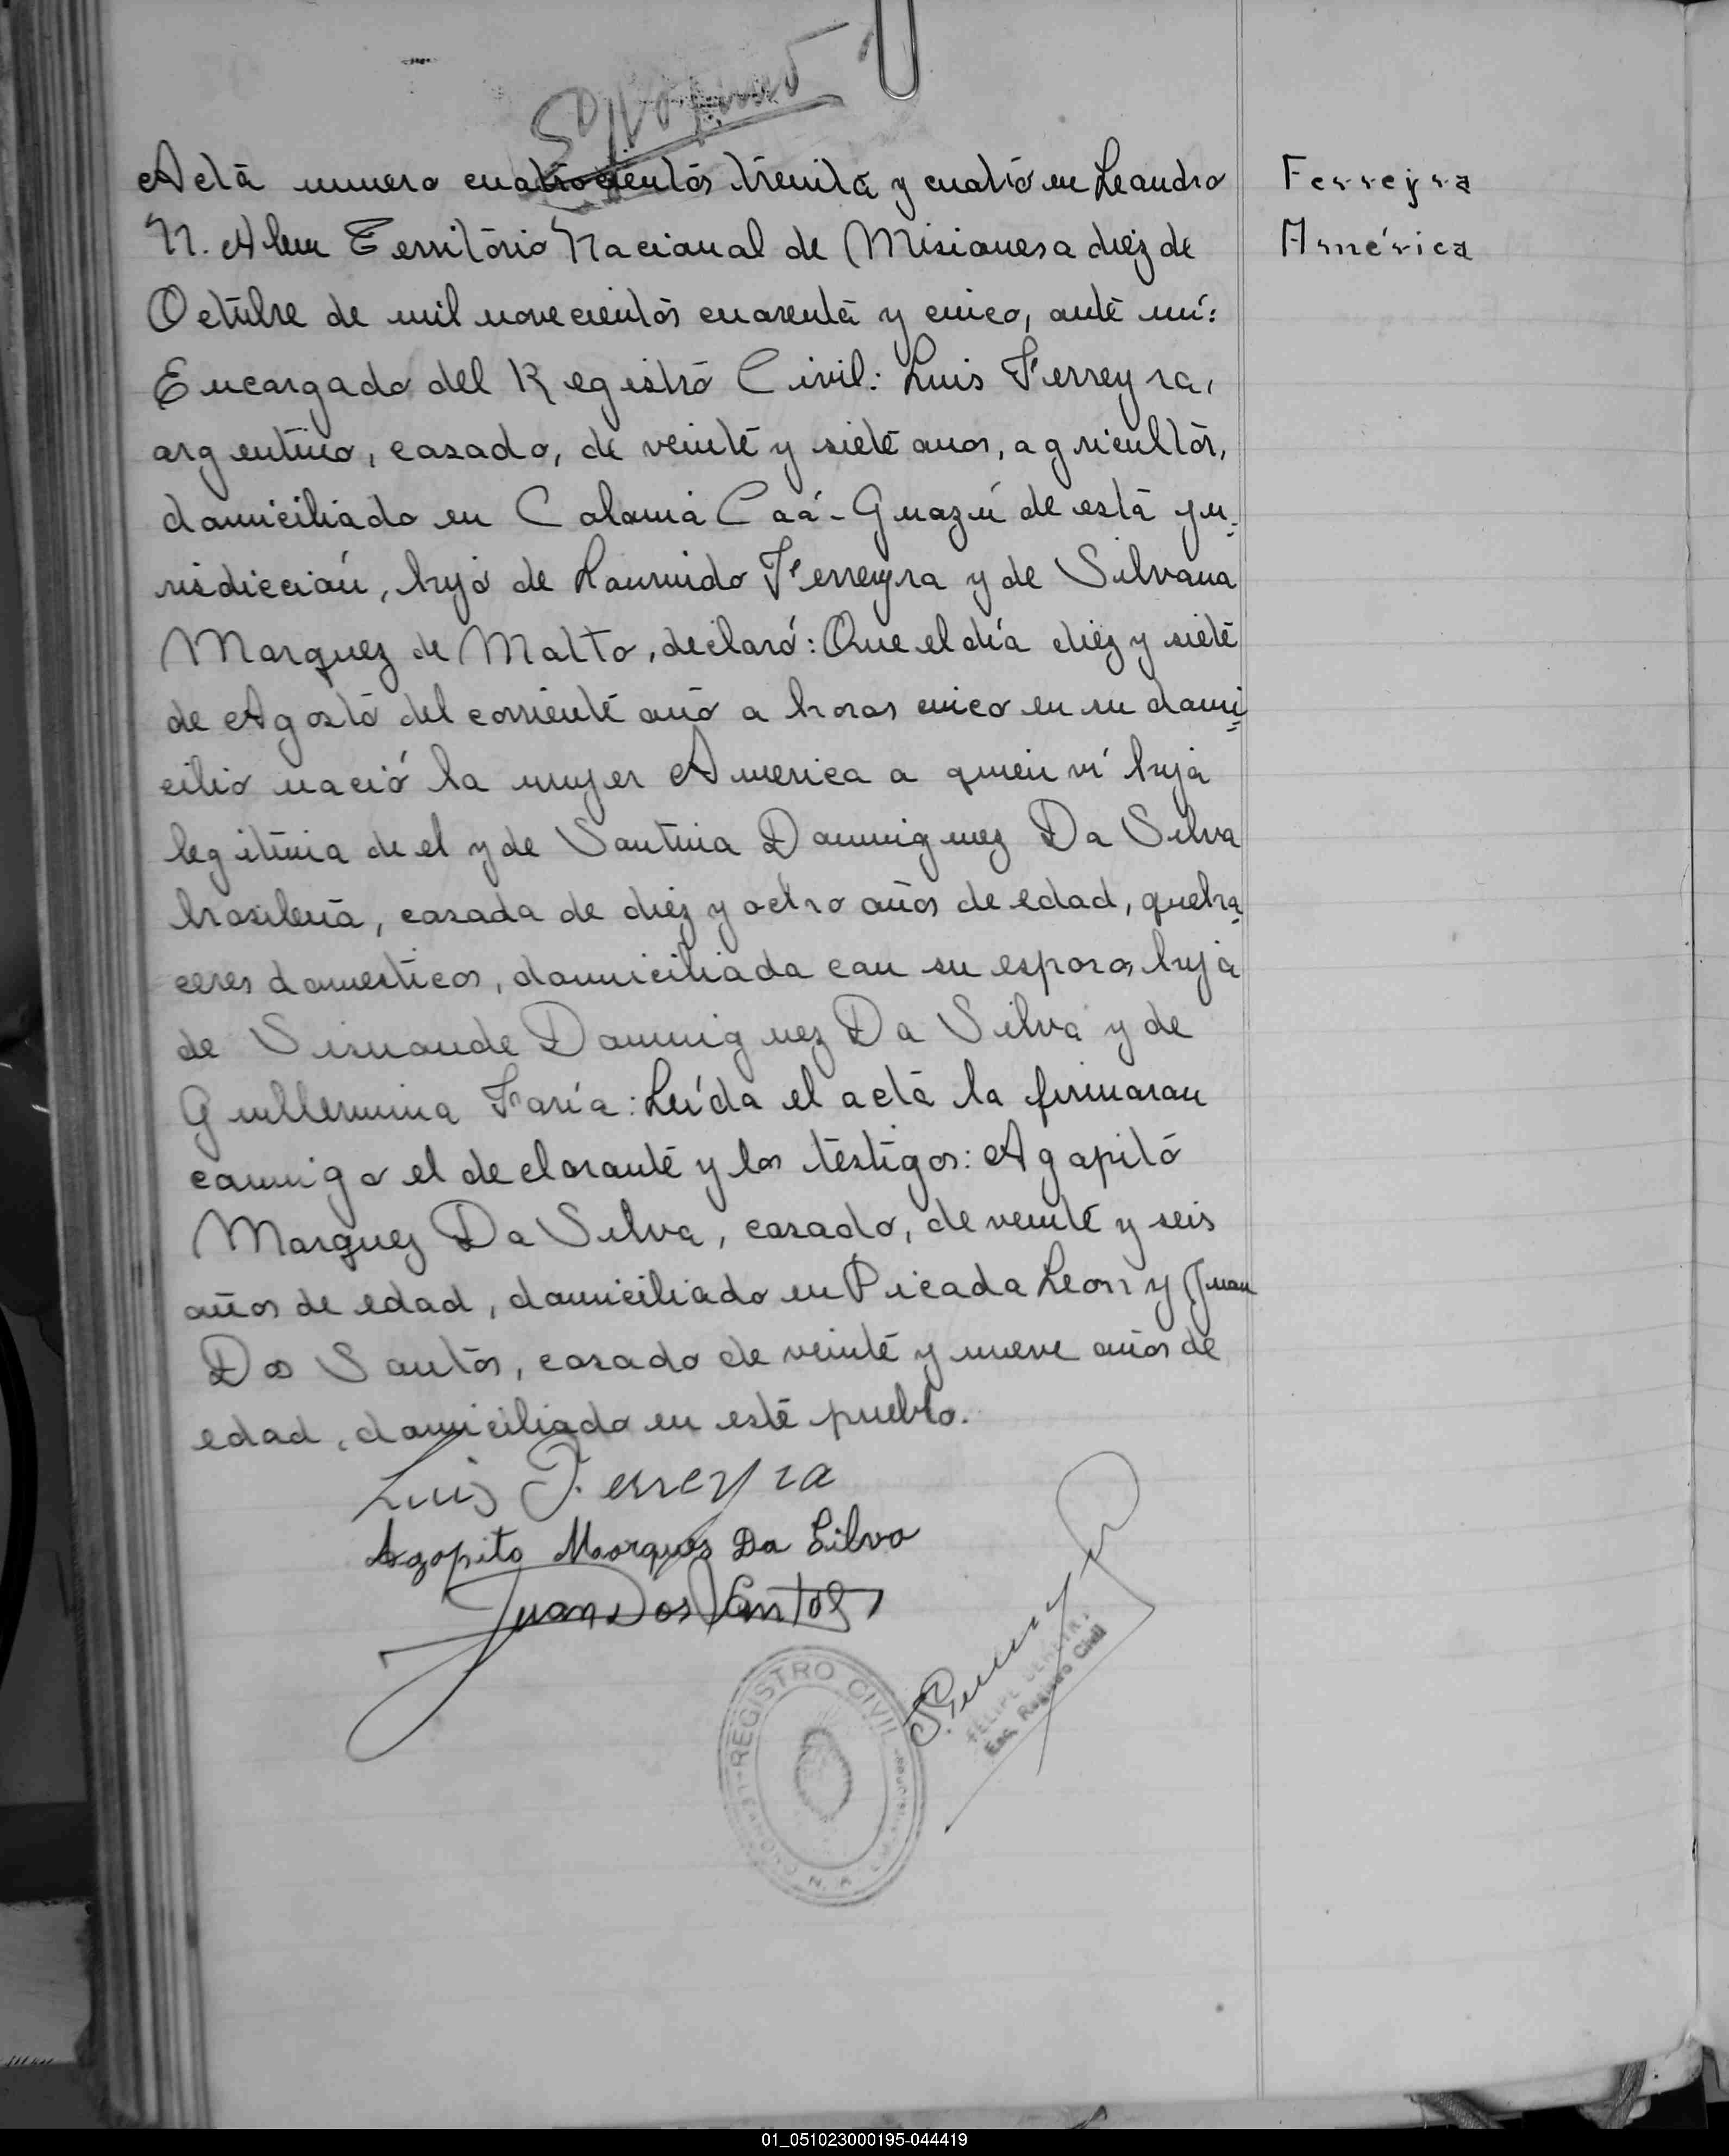 Acta numero cuatrocientos treinta y cuatro en Leandro
N. Alem Territorio Nacional de Misiones a diez de
Octubre de mil novecientos cuarenta y cinco, ante mí:
Encargado del Registro Civil: Luis Ferreyra,
argentino, casado, de veinte y siete anos, agricultor,
domiciliado en Colonia Caá-Guazú de esta ju-
risdicción, hijo de Laurindo Ferreyra y de Silvana
Marquez de Matto, declaró: Que el día diez y siete
de Agosto del corriente año a horas cinco en su domi
cilio nació la mujer America a quien ví hija
legitima de el y de Santina Dominguez Da Silva
brasileña, casada de diez y ocho años de edad, queha
ceres domesticos, domiciliada con su esposo, hija
de Dominguez Da Silva y de
Guillermina Faría: Leída el acta la firmaron
conmigo el declarante y los testigos: Agapito
Marquez Da Silva, casado, de veinte y seis
años de edad, domiciliado en Picada Leon y Juan
Dos Santos, casado de veinte y nueve años de
edad, domiciliado en este pueblo.
Luis Ferreyra
Agapito Marques Da Silva
Juan Dos Santos
REGISTRO CIVIL
FELIPE
Enc. Registro Civil
Ferreyra
América
01_051023000195-044419